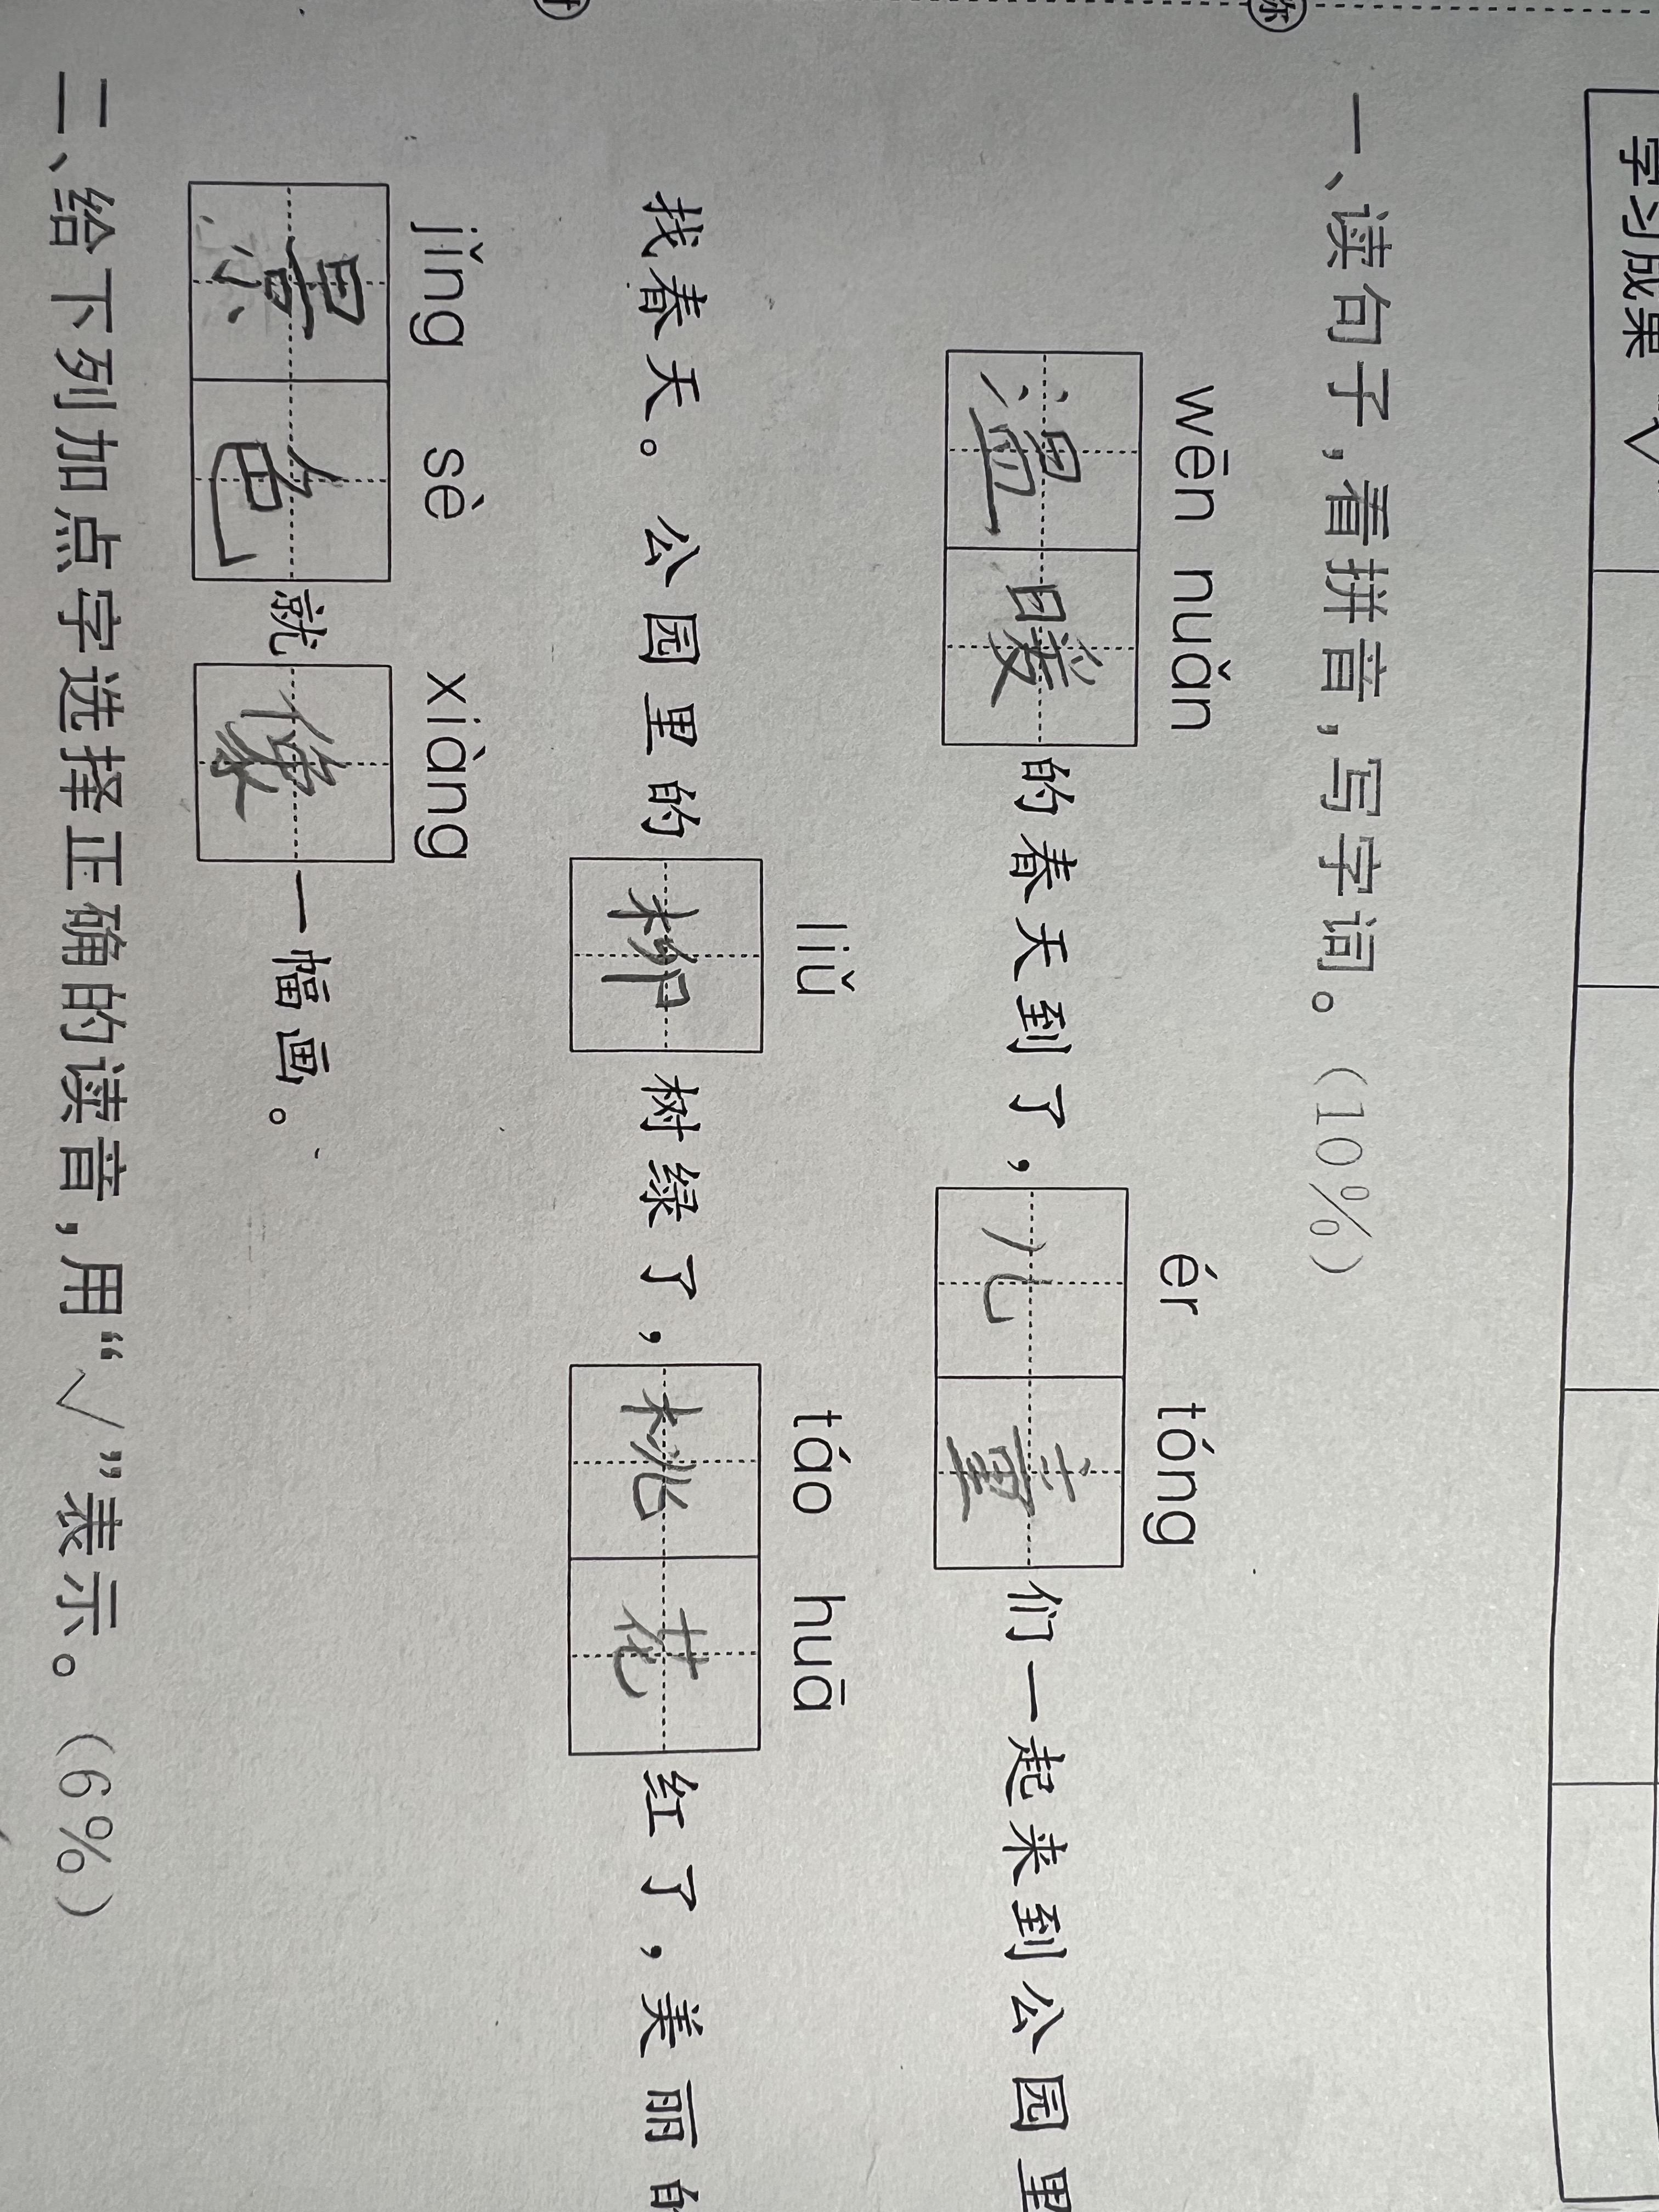 学习成果
一、读句子,看拼音,写字词。(10%)
wēn nuǎn ér tóng
温暖的春天到了,儿童们一起来到公园里
liǔ táo huā
找春天。公园里的柳树绿了,桃花红了,美丽的
jǐng sè xiàng
景色就像一幅画。
二、给下列加点字选择正确的读音,用“√”表示。(6%)